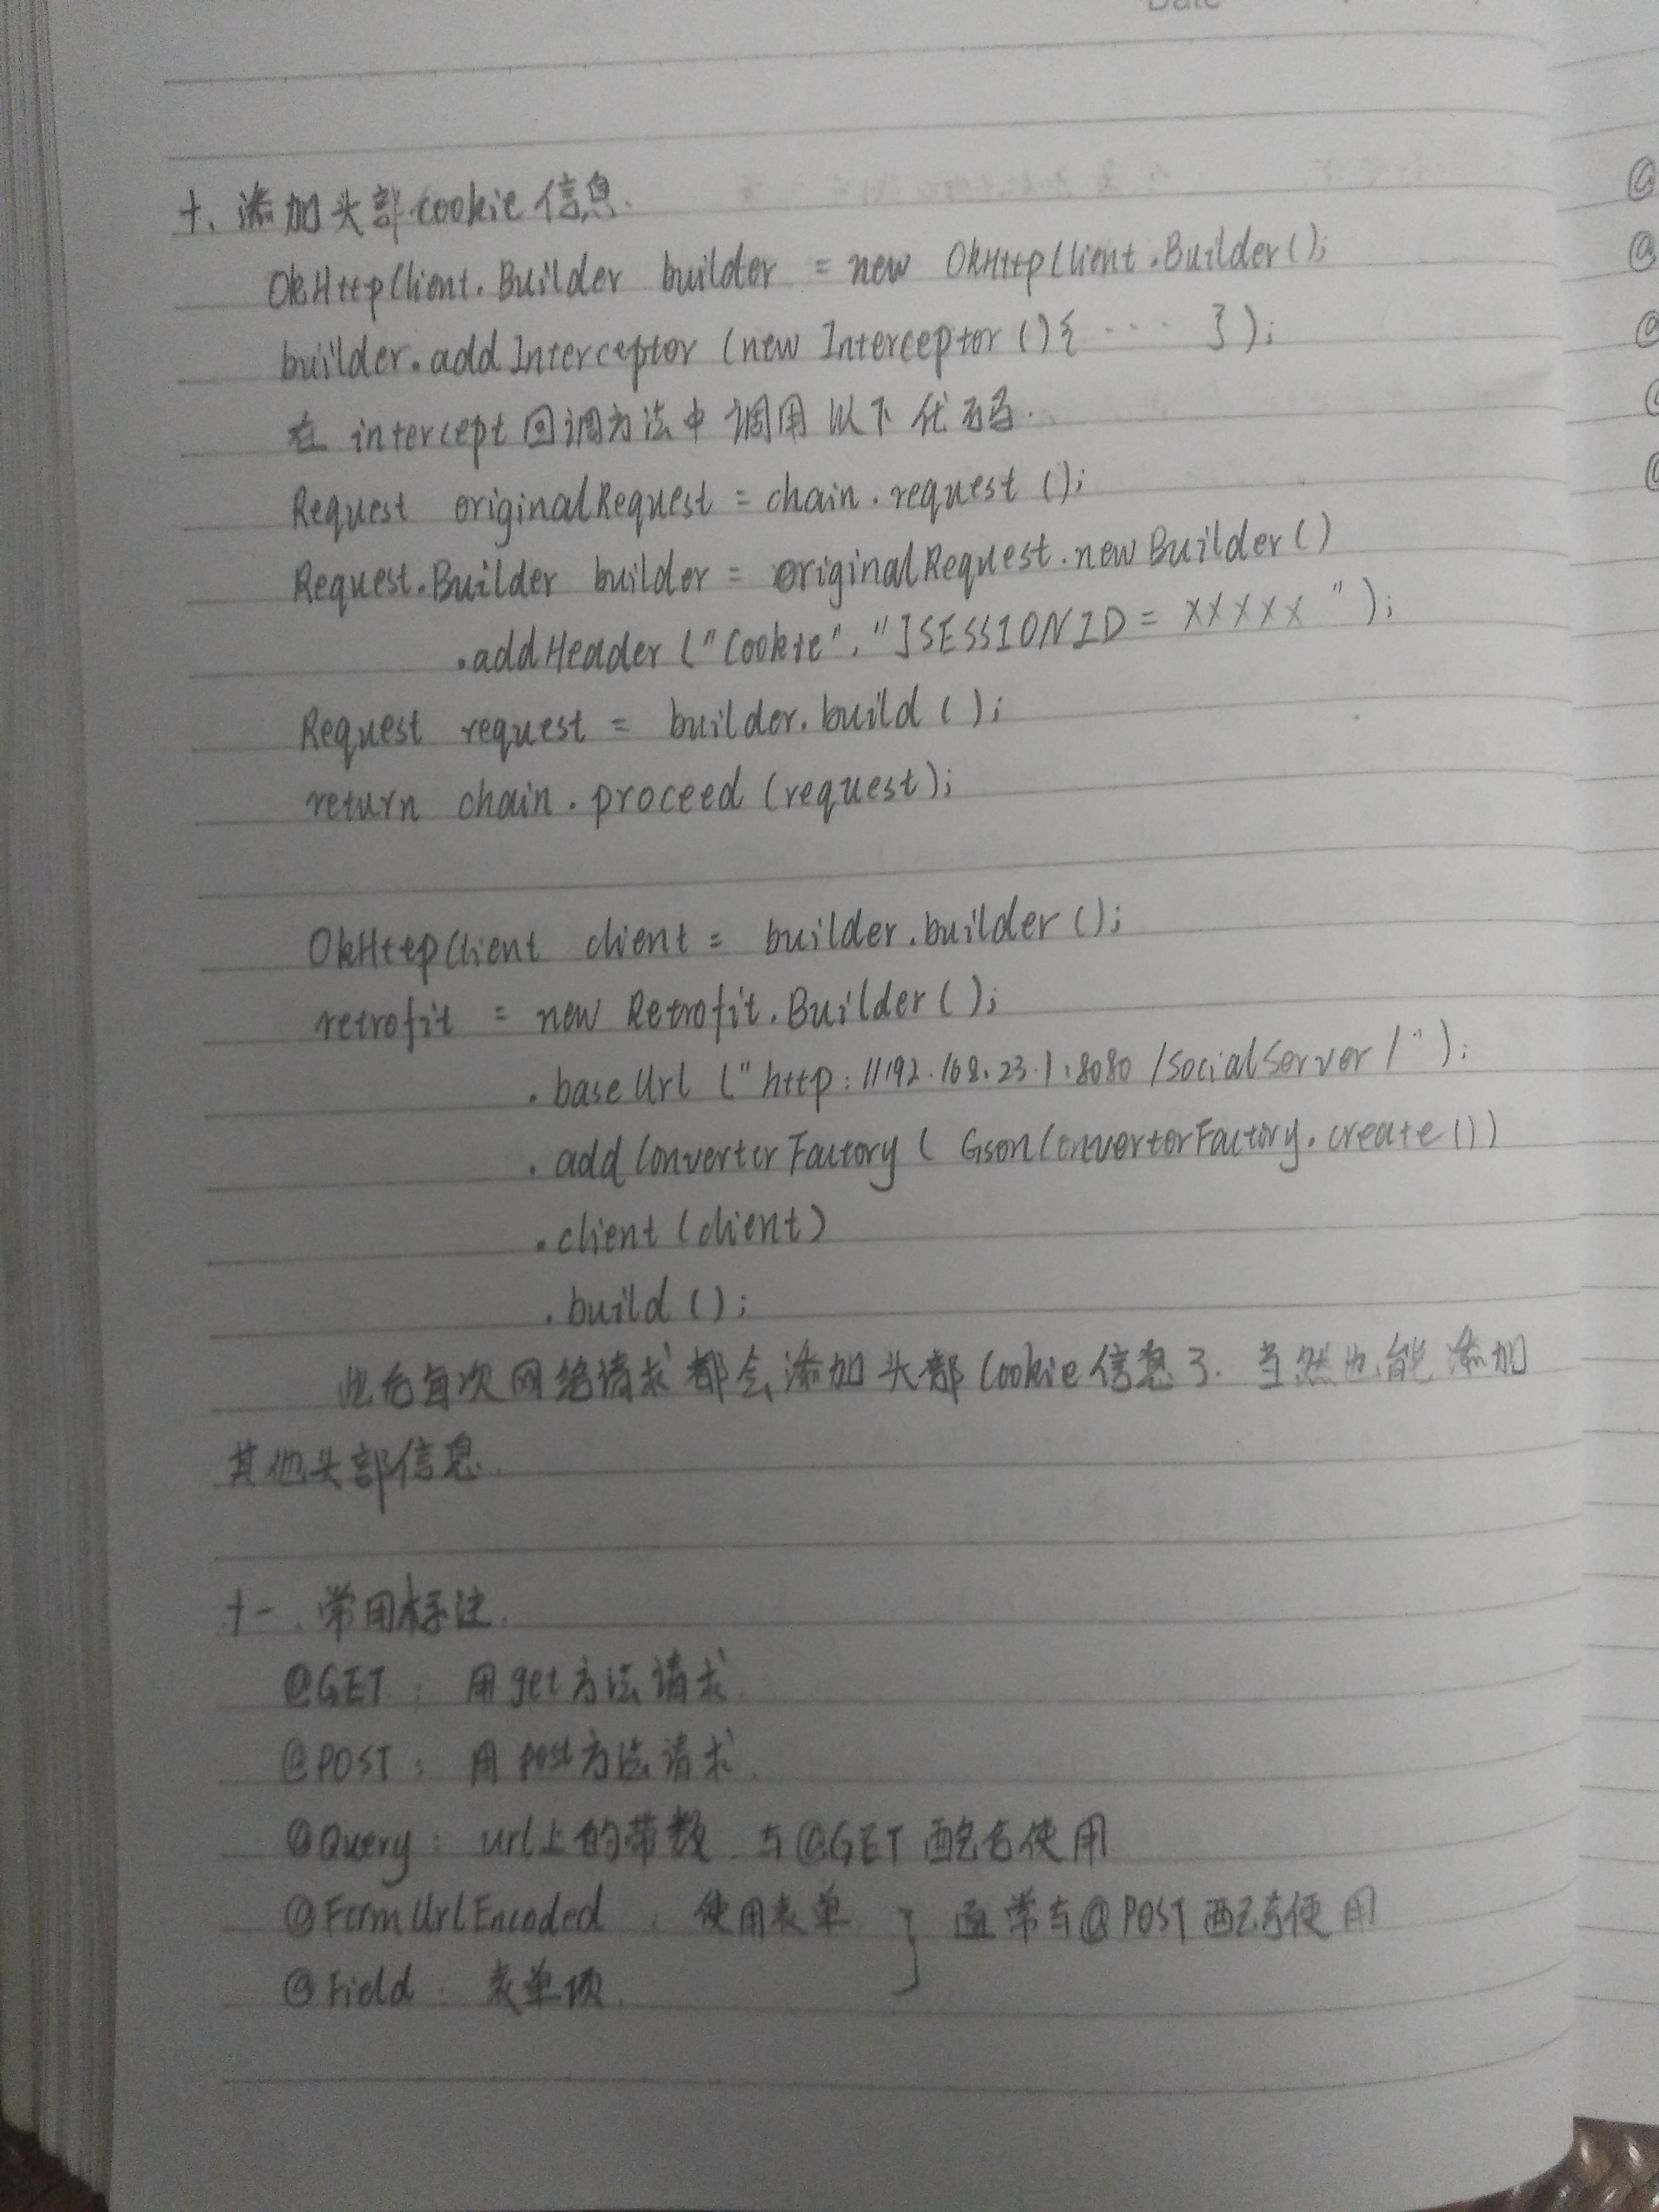 Date
十、添加头部cookie信息.
OkHttpClient.Builder builder = new OkHttpClient.Builder();
builder.addInterceptor (new Interceptor (){ ···· });
在 intercept 回调方法中 调用 以下 代码.
Request originalRequest = chain.request ();
Request.Builder builder = originalRequest.newBuilder ()
.addHeader ("Cookie", "JSESSIONID = XXXXX ");
Request request = builder.build ();
return chain.proceed (request);
OkHttpClient client = builder.builder ();
retrofit = new Retrofit.Builder ();
.baseUrl ("http://192.168.23.1:8080/SocialServer/");
.addConverterFactory ( GsonConverterFactory.create ())
.client (client)
.build ();
此后每次网络请求都会添加头部Cookie信息了. 当然也能添加
其他头部信息.
十一、常用标注.
@GET : 用get方法请求.
@POST : 用post方法请求.
@Query : url上的带数 与@GET配合使用
@FormUrlEncoded : 使用表单 } 通常与@POST配合使用
@Field : 表单项.